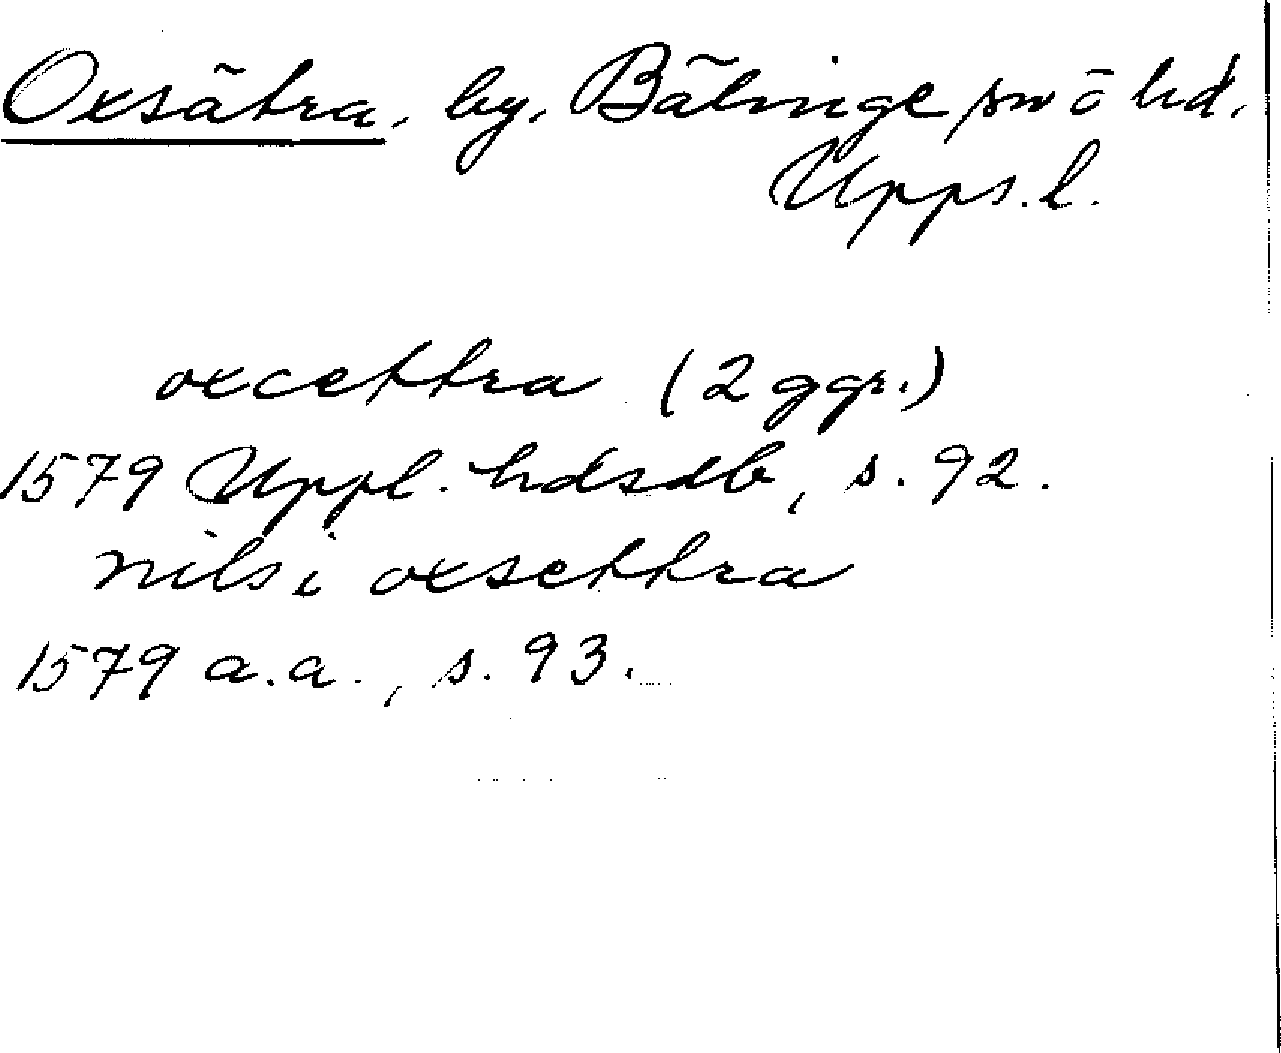 Oxsätra, by, Bälinge sn ō hd,
Upps. l.
oxcettra (2 ggr.)
1579 Uppl. hdsdb, s. 92.
nils i oxsettra
1579 a.a., s. 93.